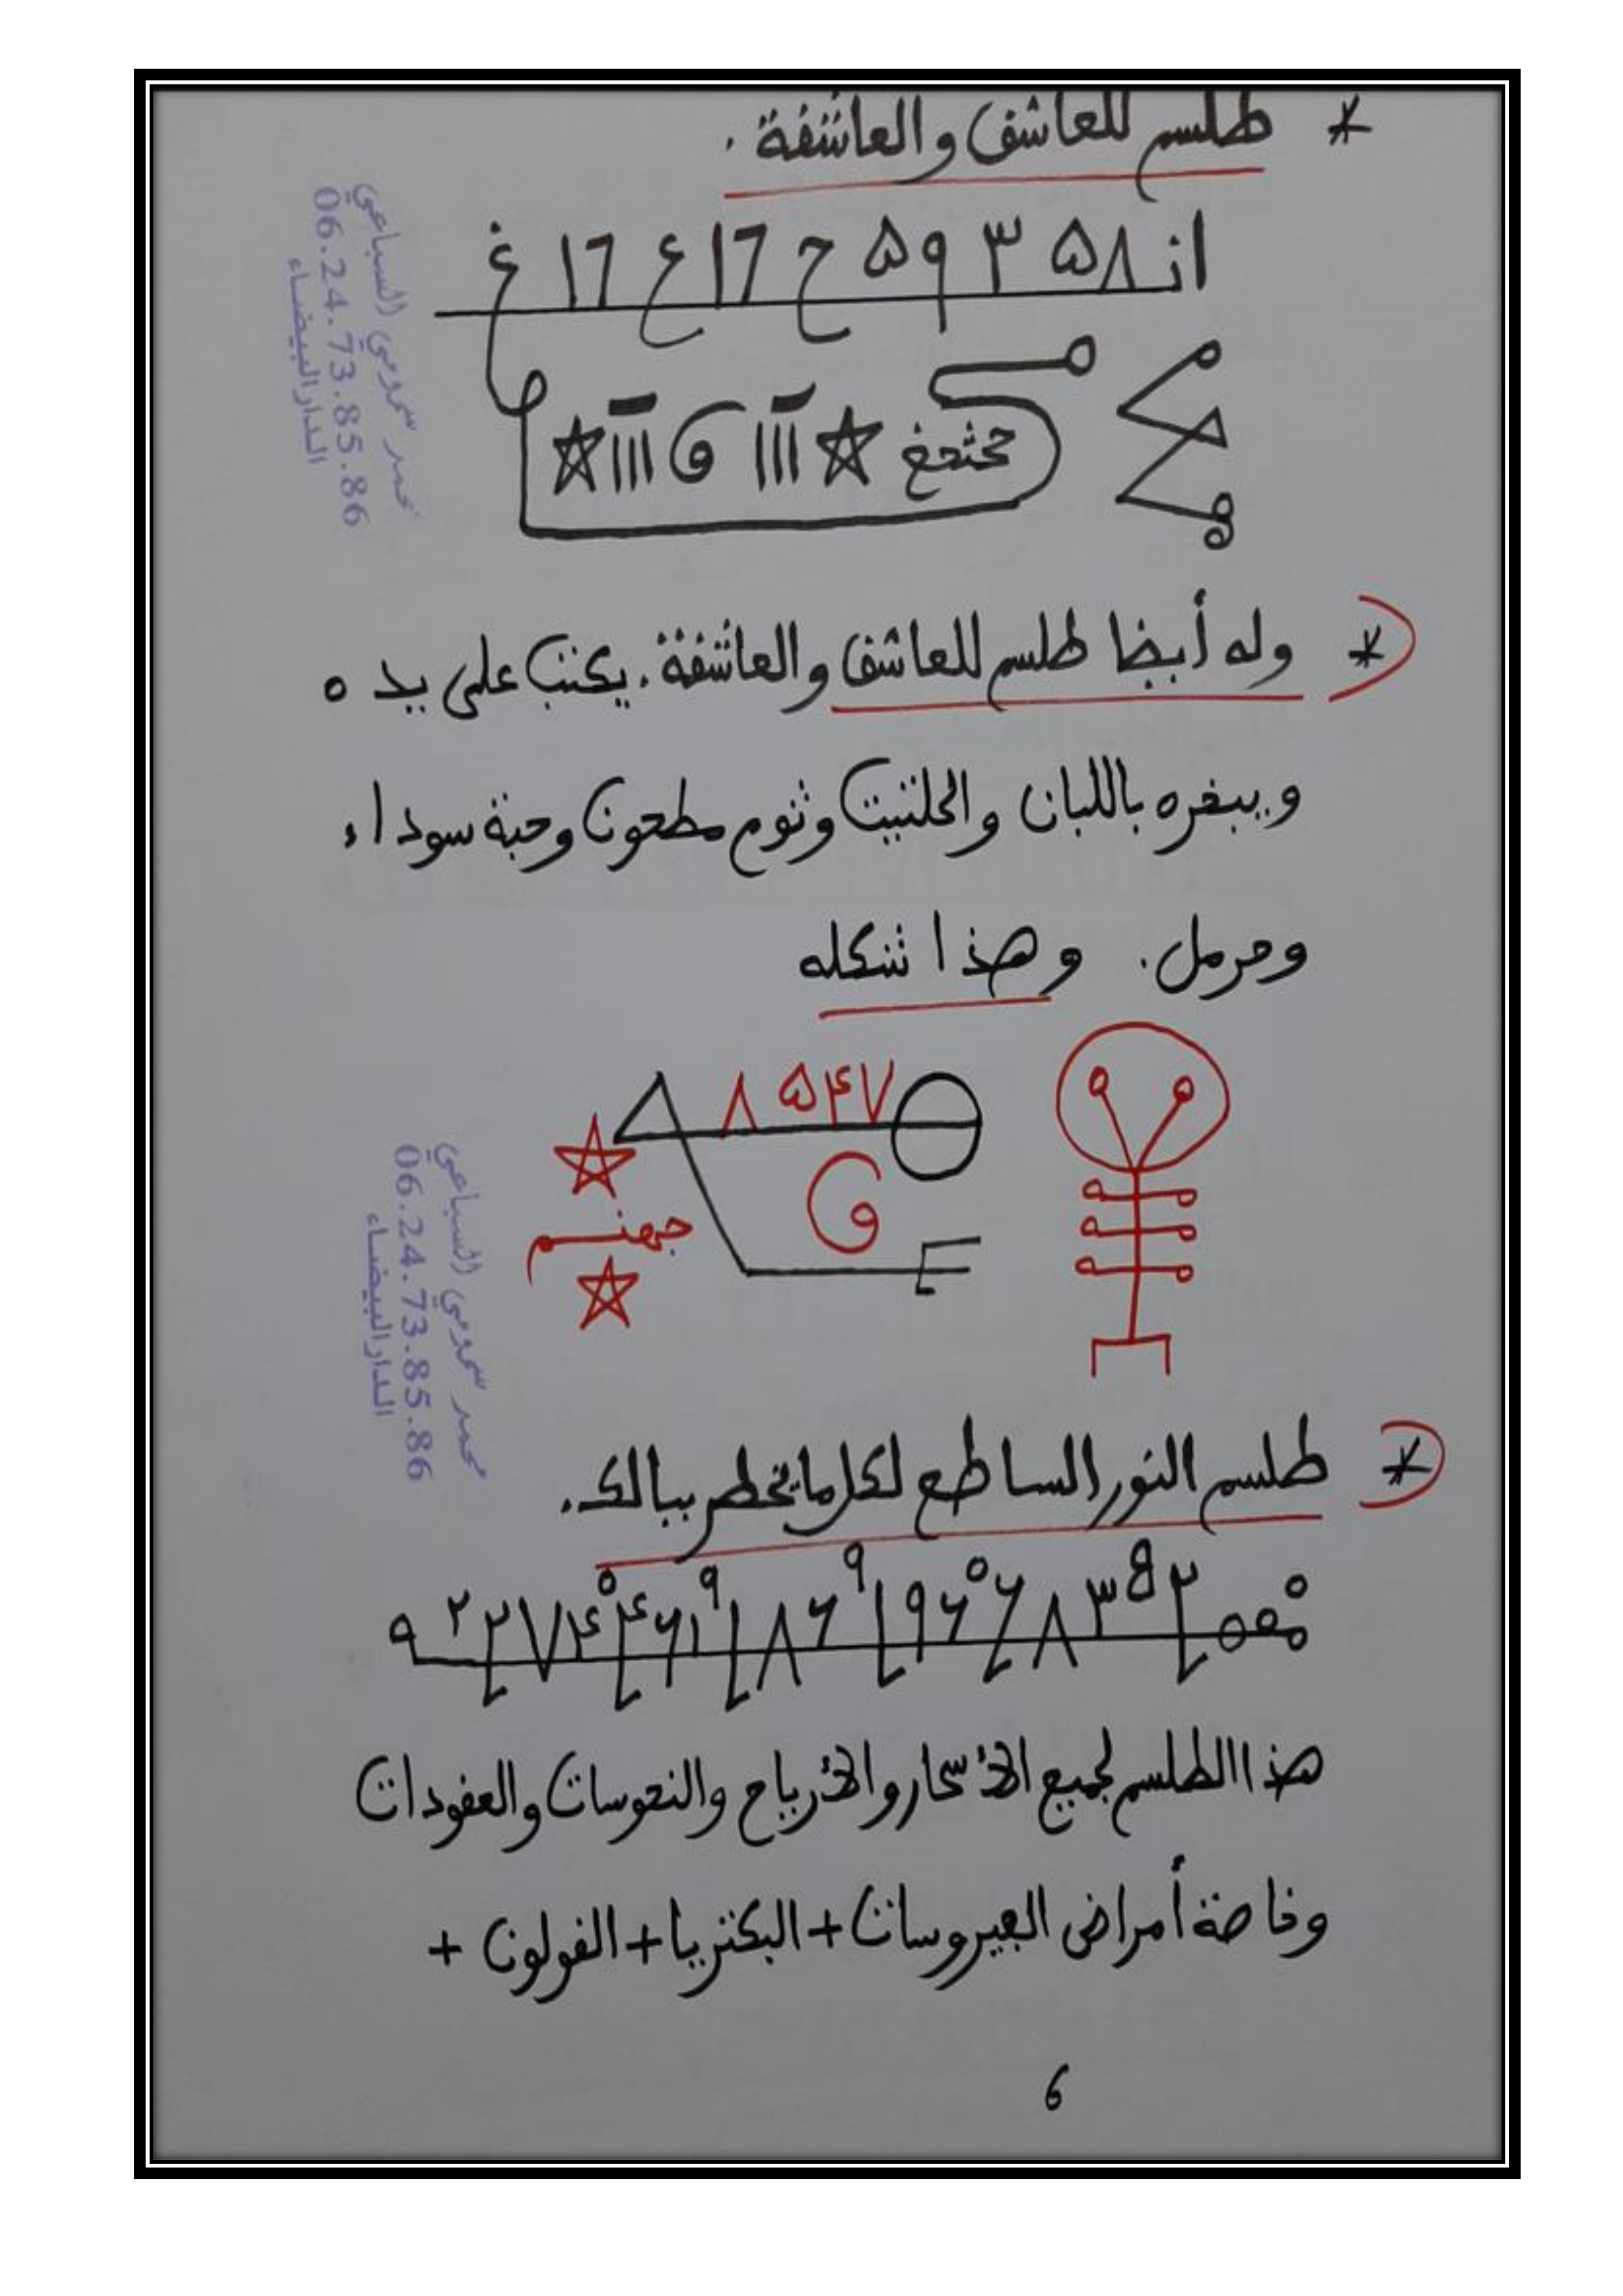 * طلسم للعاشق والعاشقة.
انـ ۸ ۵ ۳ ۹ ۵ ح 17 ع 17 غ
* وله أيضا طلسم للعاشق والعاشقة. يكتب على يده
ويبخره باللبان والحلتيت وثوم مطحون وحبة سوداء
وحرمل. وهذا شكله
۸ ۵ ۴ ۷
جهنم
* طلسم النور الساطع لكل ما يخطر ببالك.
هذا الطلسم لجميع الأسحار والأرياح والنحوسات والعقودات
وخاصة أمراض الفيروسات + البكتريا + القولون +
6
محمد السباعي
06.24.73.85.86
الدار البيضاء
محمد السباعي
06.24.73.85.86
الدار البيضاء